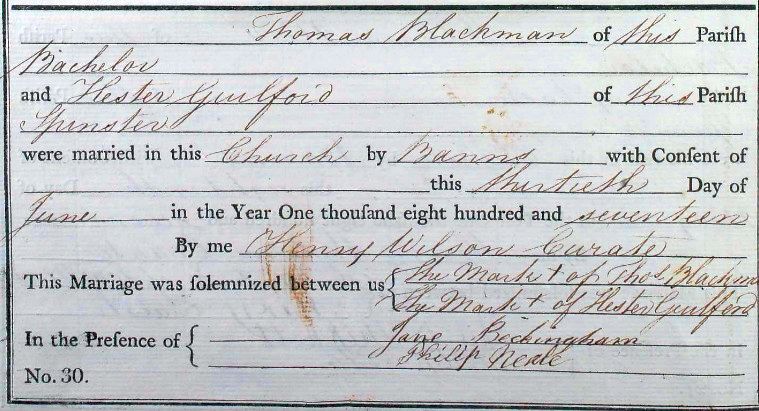 Thomas Blackman of this Pariſh
Bachelor
and Hester Guilford of this Pariſh
Spinster
were married in this Church by Banns with Conſent of
this thirtieth Day of
June in the Year One thouſand eight hundred and seventeen
By me Henry Wilson Curate
This Marriage was ſolemnized between us { The Mark + of Thos. Blackman
The Mark + of Hester Guilford
In the Preſence of { Jane Beckingham
Philip Neale
No. 30.